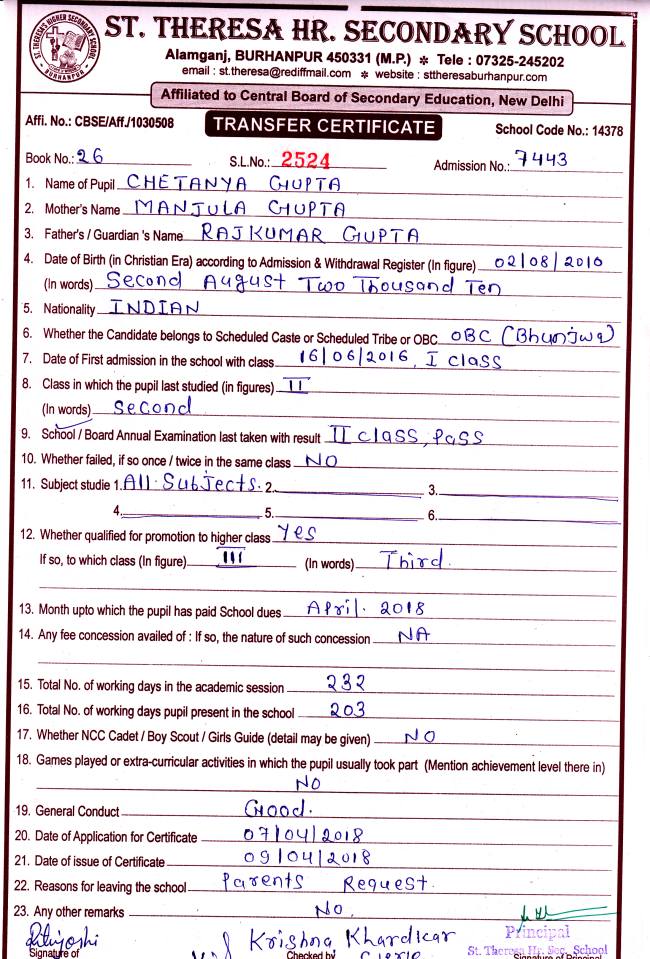 ST. THERESA HR. SECONDARY SCHOOL
Alamganj, BURHANPUR 450331 (M.P.) * Tele : 07325-245202
email : st.theresa@rediffmail.com * website : sttheresaburhanpur.com
Affiliated to Central Board of Secondary Education, New Delhi
Affi. No.: CBSE/Aff./1030508 TRANSFER CERTIFICATE School Code No.: 14378
Book No.: 26 S.L.No.: 2524 Admission No.: 7443
1. Name of Pupil CHETANYA GUPTA
2. Mother's Name MANJULA GUPTA
3. Father's / Guardian 's Name RAJKUMAR GUPTA
4. Date of Birth (in Christian Era) according to Admission & Withdrawal Register (In figure) 02/08/2010
(In words) Second August Two Thousand Ten
5. Nationality INDIAN
6. Whether the Candidate belongs to Scheduled Caste or Scheduled Tribe or OBC OBC (Bhunjwa)
7. Date of First admission in the school with class 16/06/2016, I class
8. Class in which the pupil last studied (in figures) II
(In words) Second
9. School / Board Annual Examination last taken with result II class, Pass
10. Whether failed, if so once / twice in the same class NO
11. Subject studie 1. All Subjects. 2. 3.
4. 5. 6.
12. Whether qualified for promotion to higher class Yes
If so, to which class (In figure) III (In words) Third.
13. Month upto which the pupil has paid School dues April. 2018
14. Any fee concession availed of : If so, the nature of such concession NA
15. Total No. of working days in the academic session 232
16. Total No. of working days pupil present in the school 203
17. Whether NCC Cadet / Boy Scout / Girls Guide (detail may be given) NO
18. Games played or extra-curricular activities in which the pupil usually took part (Mention achievement level there in)
NO
19. General Conduct Good.
20. Date of Application for Certificate 07/04/2018
21. Date of issue of Certificate 09/04/2018
22. Reasons for leaving the school Parents Request.
23. Any other remarks NO.
Krishna Khardikar Principal
Signature of Checked by Clerk St. Theresa Hr. Sec. School
Signature of Principal